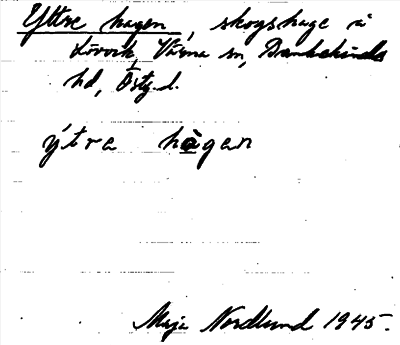 Yttre hagen, skogshage å
Lövvik, Värna sn, Bankekinds
hd, Östg.d.
ýtra hàgan
Maja Nordlund 1945.